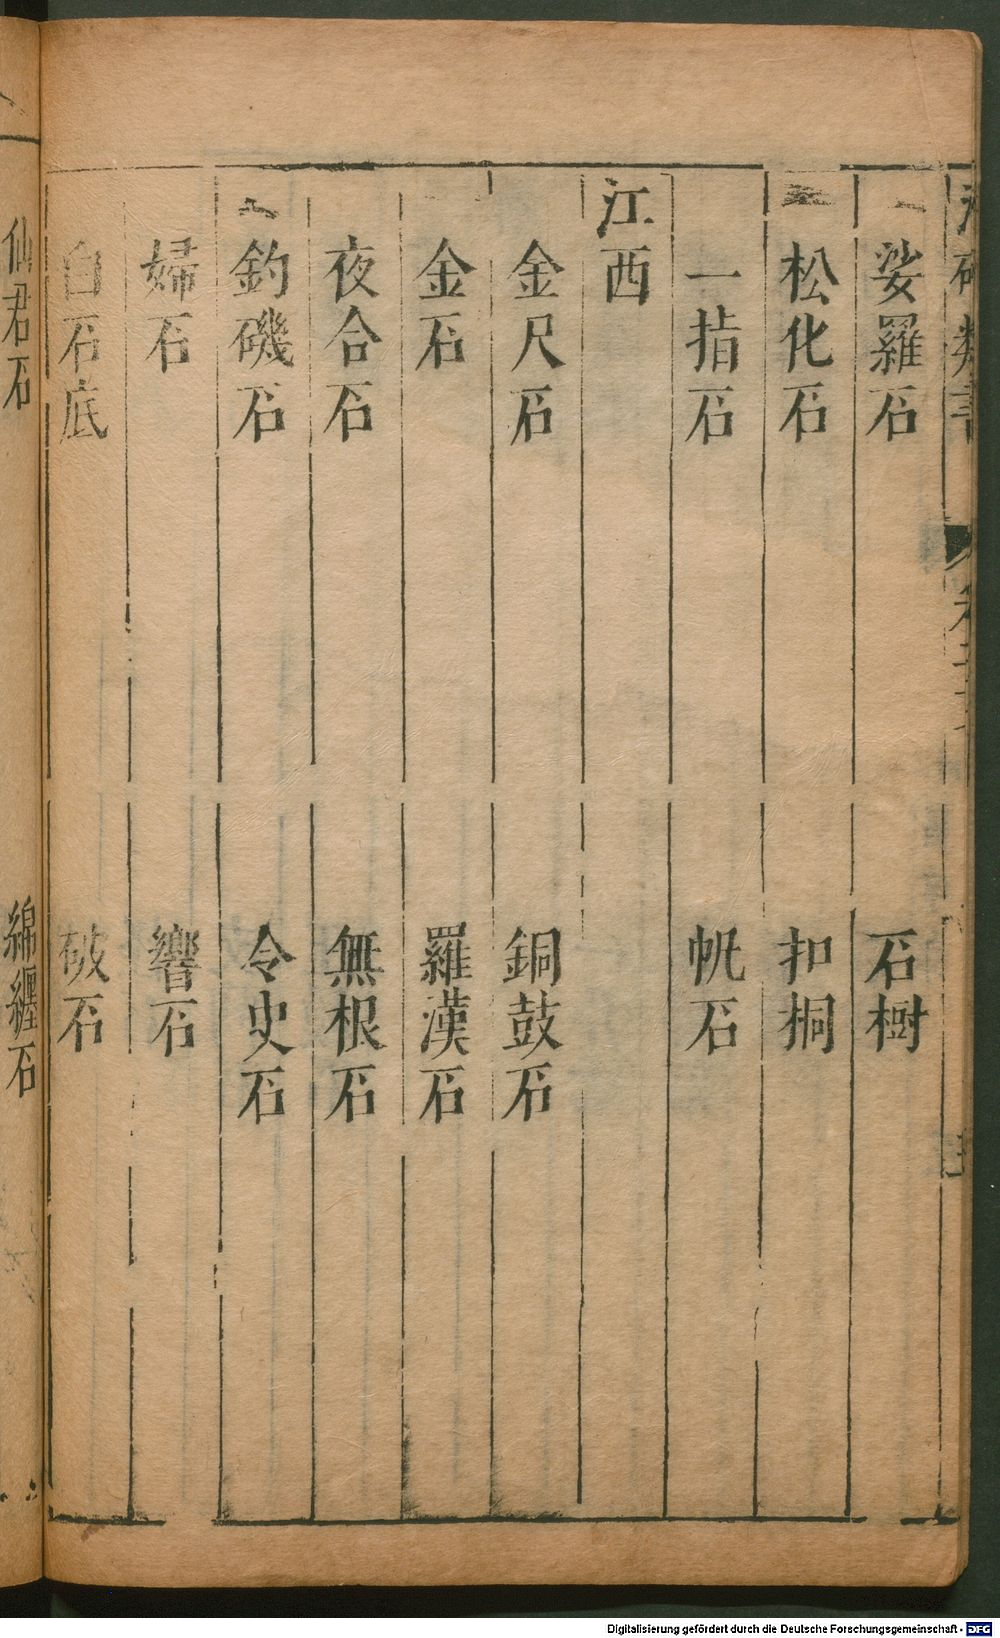 娑羅石 石樹
松化石 扣桐
一指石 帆石
江西
金尺石 銅鼓石
金石 羅漢石
夜合石 無根石
釣磯石 令史石
婦石 響石
白石底 破石
仙君石 綿纏石
Digitalisierung gefördert durch die Deutsche Forschungsgemeinschaft - DFG